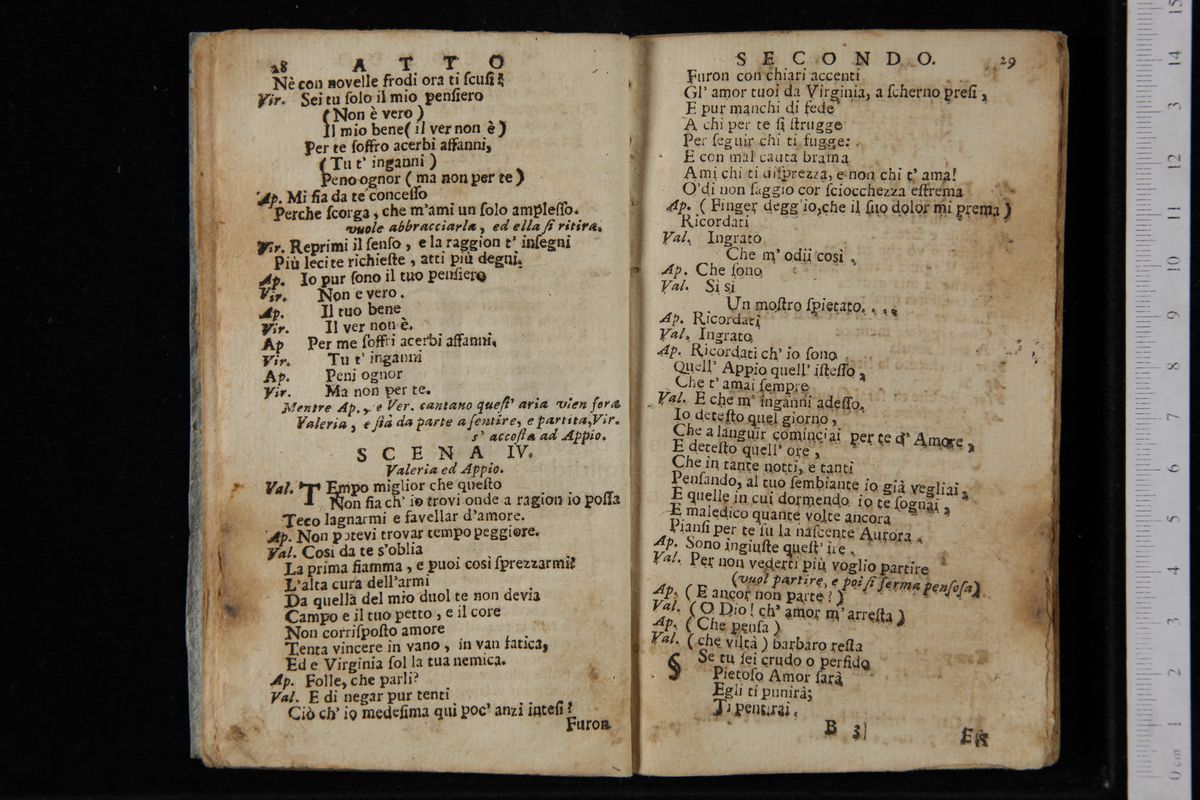 28 ATTO
Nè con novelle frodi ora ti ſcuſi?
Vir. Sei tu ſolo il mio penſiero
(Non è vero)
Il mio bene (il ver non è)
Per te ſoffro acerbi affanni,
(Tu t' inganni)
Peno ognor (ma non per te)
Ap. Mi ſia da te conceſſo
Perche ſcorga, che m'ami un ſolo ampleſſo.
vuole abbracciarla, ed ella ſi ritira.
Vir. Reprimi il ſenſo, e la raggion t' inſegni
Più lecite richieſte, atti più degni.
Ap. Io pur ſono il tuo penſiero
Vir. Non e vero.
Ap. Il tuo bene
Vir. Il ver non è.
Ap Per me ſoffri acerbi affanni.
Vir. Tu t' inganni
Ap. Peni ognor
Vir. Ma non per te.
Mentre Ap., e Ver. cantano queſt' aria vien fora
Valeria, e ſtà da parte a ſentire, e partita, Vir.
s' accoſta ad Appio.
SCENA IV.
Valeria ed Appio.
Val. TEmpo miglior che queſto
Non fia ch' io trovi onde a ragion io poſſa
Teco lagnarmi e favellar d'amore.
Ap. Non potevi trovar tempo peggiore.
Val. Cosi da te s'oblia
La prima fiamma, e puoi così ſprezzarmi?
L'alta cura dell'armi
Da quella del mio duol te non devia
Campo e il tuo petto, e il core
Non corriſpoſto amore
Tenta vincere in vano, in van fatica,
Ed e Virginia ſol la tua nemica.
Ap. Folle, che parli?
Val. E di negar pur tenti
Ciò ch' io medeſima qui poc' anzi inteſi?
Furon
SECONDO. 29
Furon con chiari accenti
Gl' amor tuoi da Virginia, a ſcherno preſi,
E pur manchi di fede
A chi per te ſi ſtrugge
Per ſeguir chi ti fugge:
E con mal cauta brama
Ami chi ti diſprezza, e non chi t' ama!
O' di non ſaggio cor ſciocchezza eſtrema
Ap. (Finger degg'io, che il ſuo dolor mi prema)
Ricordati
Val. Ingrato
Che m' odii così.
Ap. Che ſono
Val. Sì si
Un moſtro ſpietato....
Ap. Ricordati
Val. Ingrato
Ap. Ricordati ch' io ſono
Quell' Appio quell' iſteſſo,
Che t' amai ſempre
Val. E che m' inganni adeſſo.
Io deteſto quel giorno,
Che a languir cominciai per te d' Amore,
E deteſto quell' ore,
Che in tante notti, e tanti
Penſando, al tuo ſembiante io già vegliai,
E quelle in cui dormendo io te ſognai,
E maledico quante volte ancora
Pianſi per te ſu la naſcente Aurora.
Ap. Sono ingiuſte queſt' ire.
Val. Per non vederti più voglio partire
(vuol partire, e poi ſi ferma penſoſa)
Ap. (E ancor non parte?)
Val. (O Dio! ch' amor m' arreſta)
Ap. (Che penſa)
Val. (che viltà) barbaro reſta
§ Se tu ſei crudo o perfido
Pietoſo Amor ſarà
Egli ti punirà;
Ti pentirai.
B 3